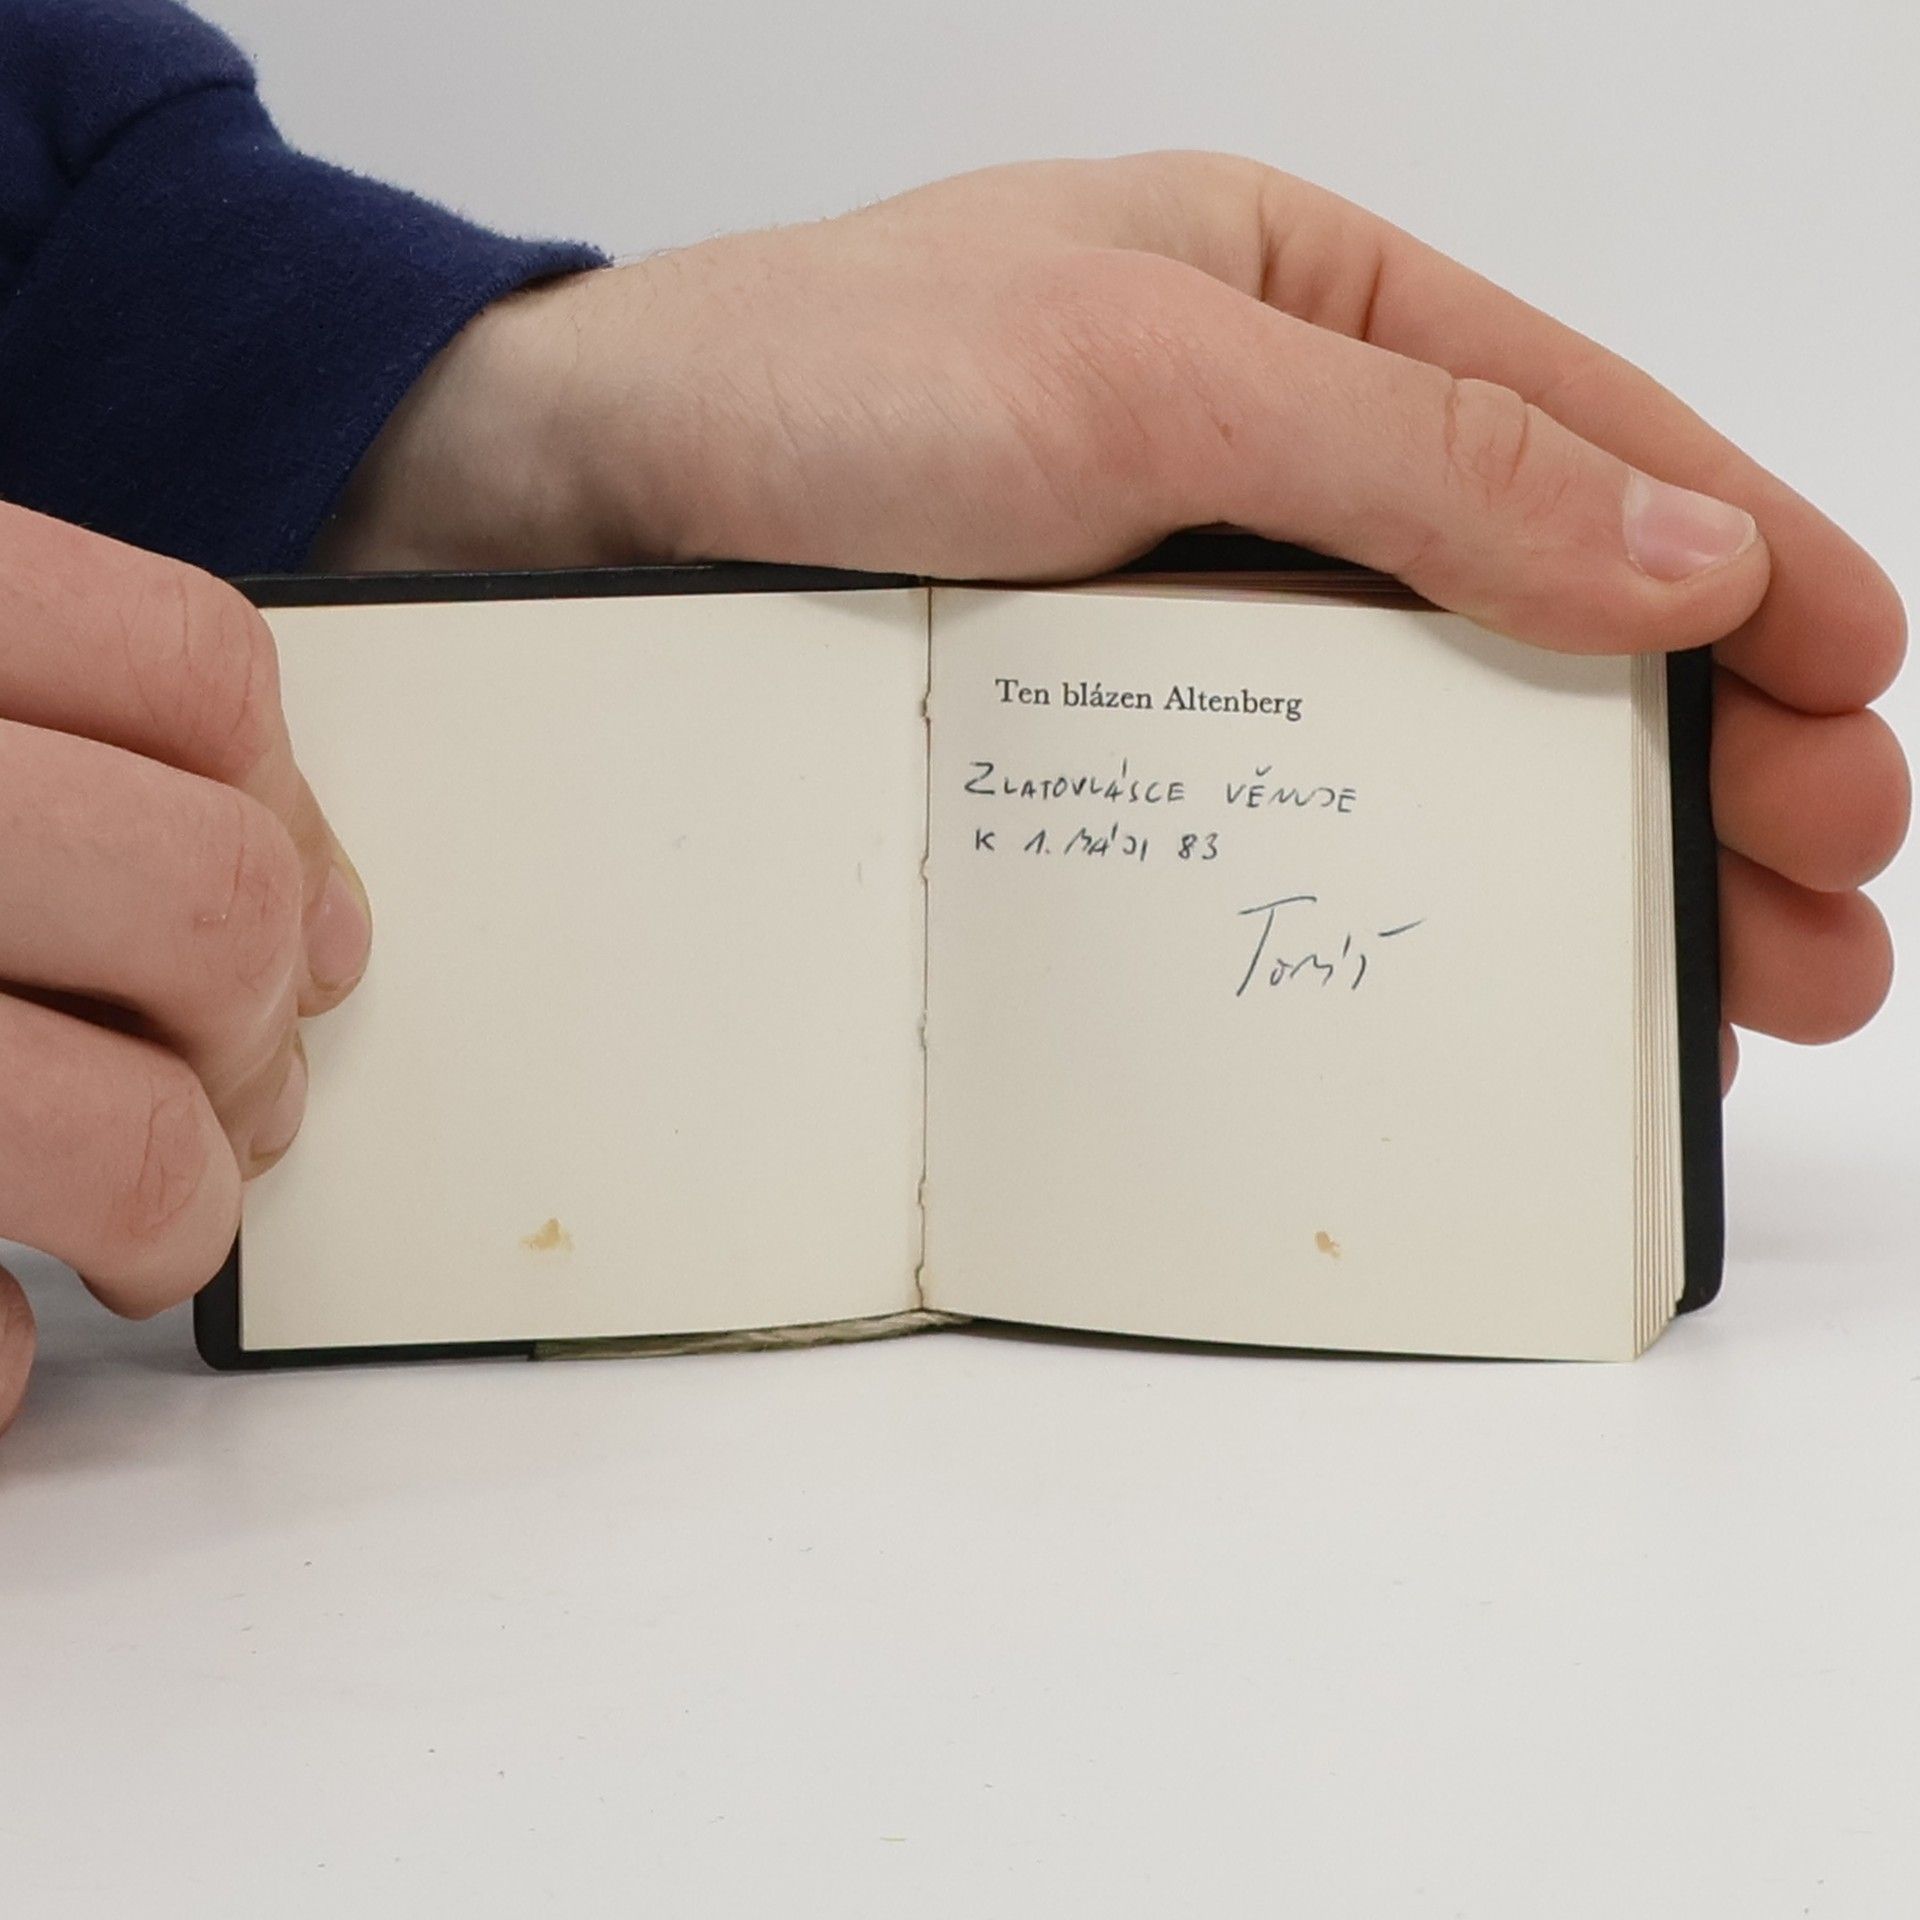 Ten blázen Altenberg
ZLATOVLÁSCE VĚNUJE
K 1. MÁJI 83
Tomáš